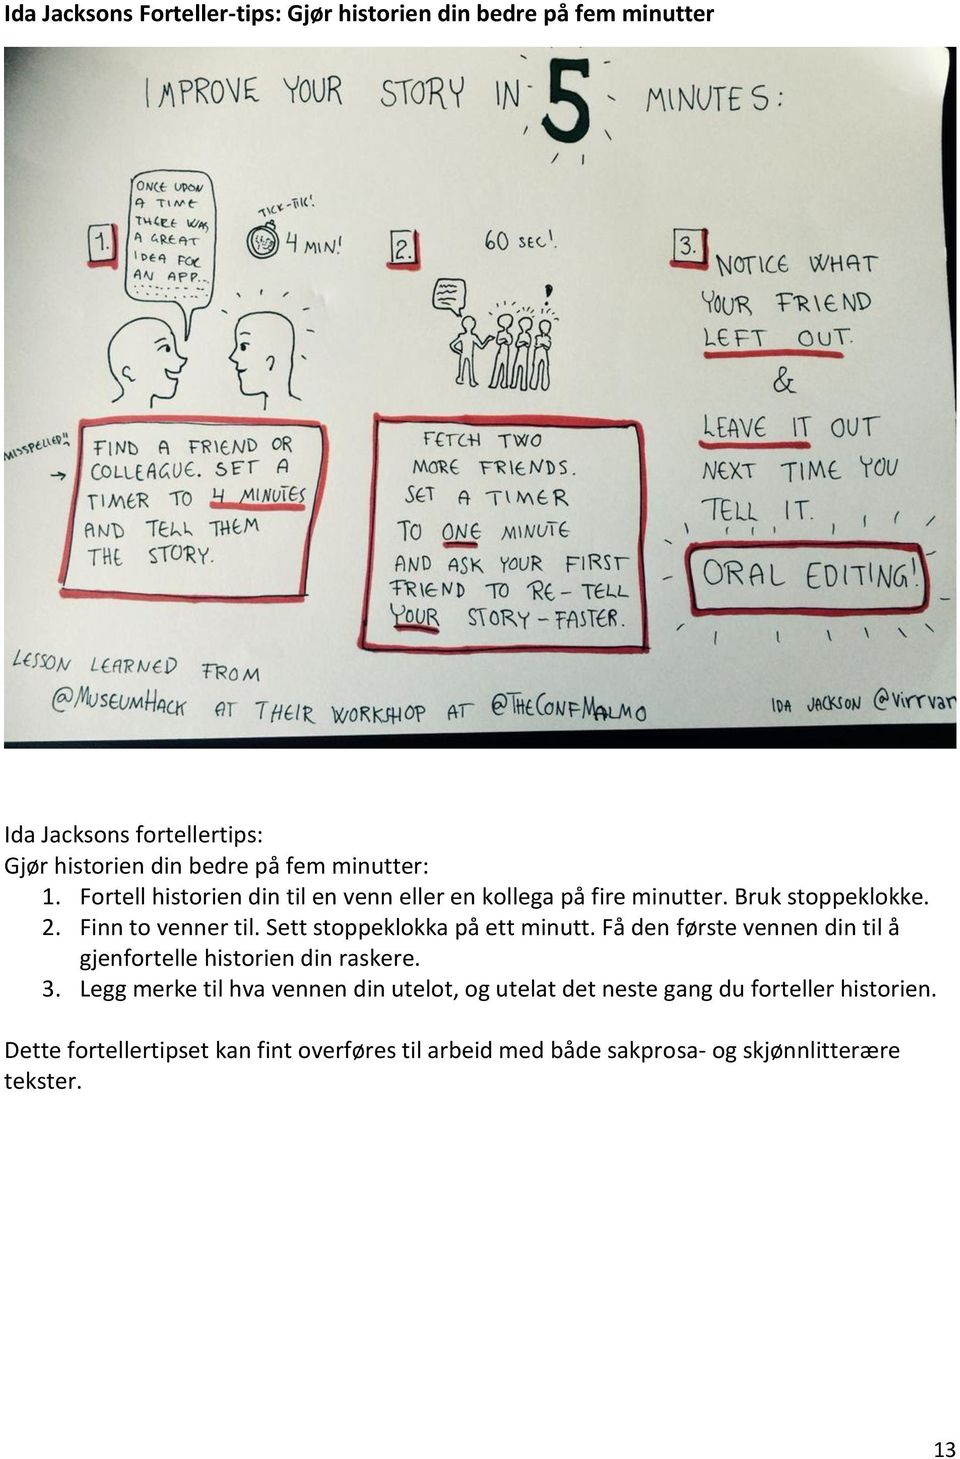 Ida Jacksons Forteller-tips: Gjør historien din bedre på fem minutter
IMPROVE YOUR STORY IN 5 MINUTES:
1.
ONCE UPON
A TIME
THERE WAS
A GREAT
IDEA FOR
AN APP...
TICK-TIC!
4 MIN!
MISSPELLED!!
FIND A FRIEND OR
COLLEAGUE. SET A
TIMER TO 4 MINUTES
AND TELL THEM
THE STORY.
2.
60 SEC!
FETCH TWO
MORE FRIENDS.
SET A TIMER
TO ONE MINUTE
AND ASK YOUR FIRST
FRIEND TO RE-TELL
YOUR STORY-FASTER.
3.
NOTICE WHAT
YOUR FRIEND
LEFT OUT.
&
LEAVE IT OUT
NEXT TIME YOU
TELL IT.
ORAL EDITING!
LESSON LEARNED FROM
@MUSEUMHACK AT THEIR WORKSHOP AT @THECONFMALMO
IDA JACKSON @Virrvar
Ida Jacksons fortellertips:
Gjør historien din bedre på fem minutter:
1. Fortell historien din til en venn eller en kollega på fire minutter. Bruk stoppeklokke.
2. Finn to venner til. Sett stoppeklokka på ett minutt. Få den første vennen din til å
gjenfortelle historien din raskere.
3. Legg merke til hva vennen din utelot, og utelat det neste gang du forteller historien.
Dette fortellertipset kan fint overføres til arbeid med både sakprosa- og skjønnlitterære
tekster.
13